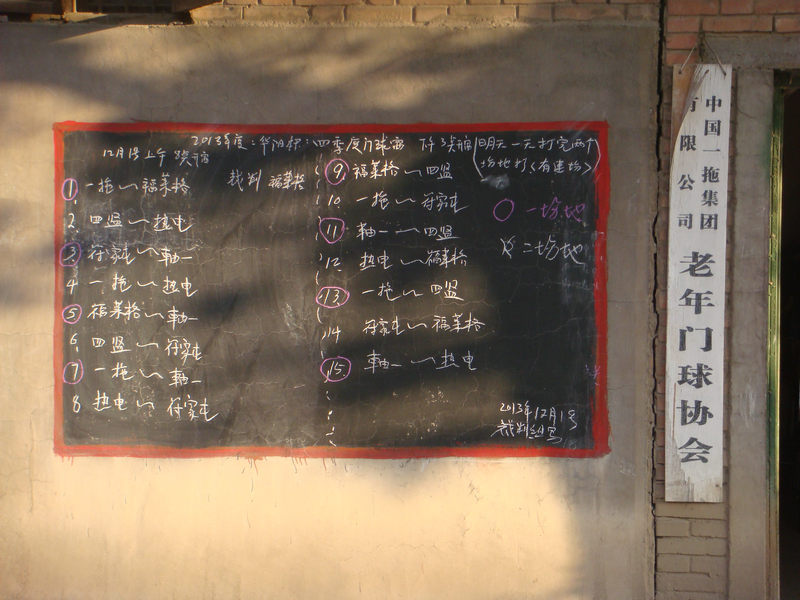 2013年度:华阳杯:四季度门球赛
12月1号上午
裁判 福莱格
明天一天打完两个
场地打(有建场)
1 一拖~福莱格
2 四监~热电
3 符家屯~轴一
4 一拖~热电
5 福莱格~轴一
6 四监~符家屯
7 一拖~轴一
8 热电~符家屯
9 福莱格~四监
10 一拖~符家屯
11 轴一~四监
12 热电~福莱格
13 一拖~四监
14 符家屯~福莱格
15 轴一~热电
○一场地
二场地
2013年12月1号
裁判组写
中国一拖集团
有限公司
老年门球协会